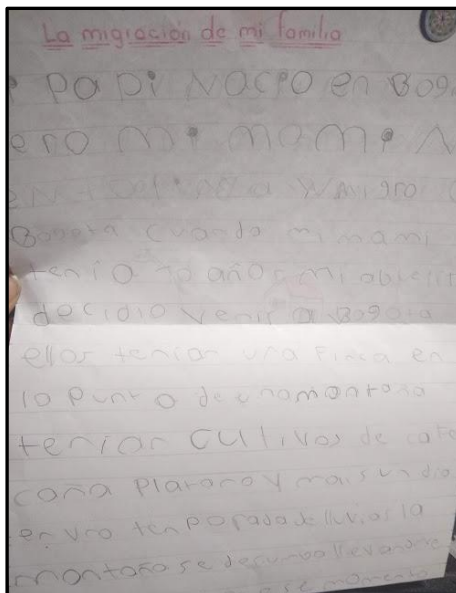 La migración de mi familia
PaPi Nacio en Bog
ero mi mami N
en y migro
Bogota cuando mi mami
tenia 10 años mi abuelit
decidio venir a Bogota
ellos tenian una Finca en
la punt a de una montaña
tenian cultivos de cafe
caña Platano y mais un dia
en una tenporada de lluvias la
montaña se derumbo llevandose
ese momento